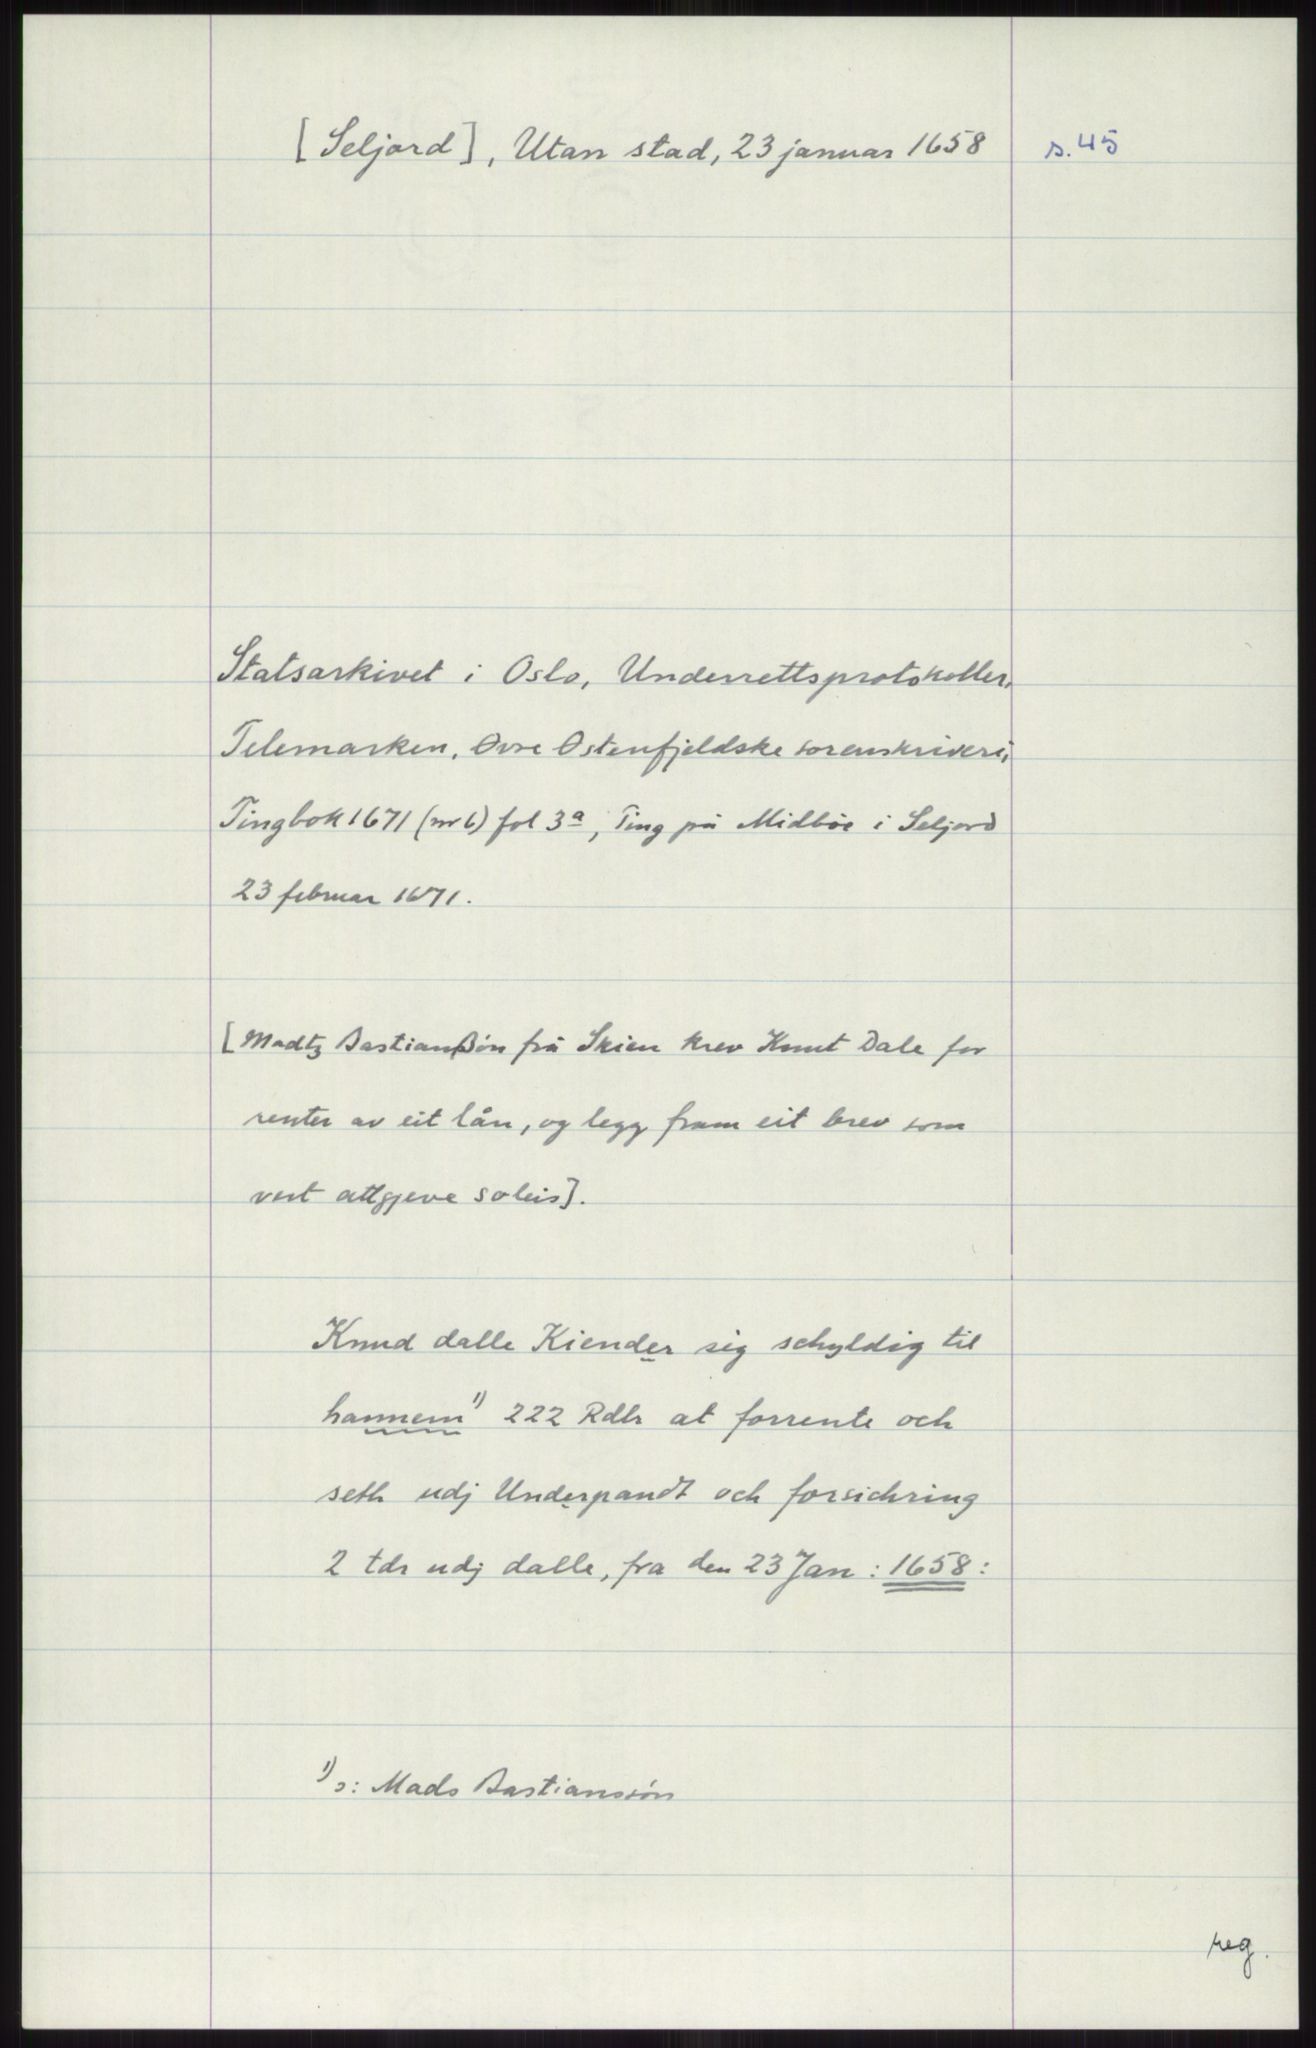 [Seljord], Utan stad, 23 januar 1658 s. 45
Statsarkivet i Oslo, Underrettsprotokoller,
Telemarken, Øvre Østenfjeldske sorenskriveri,
Tingbok 1671 (nr 6) fol 3a, Ting på Midbøe i Seljord
23 februar 1671.
[Madtz Bastianßøn frå Skien krev Knut Dale for
renter av eit lån, og legg fram eit brev som
vert attgjeve soleis].
Knud dalle Kiender sig schyldig til
hannem 1) 222 Rdlr at forrente och
seth udj Underpandt och forsichring
2 tdr udj dalle, fra den 23 Jan : 1658 :
1) ɔ: Mads Bastianssøn
reg.